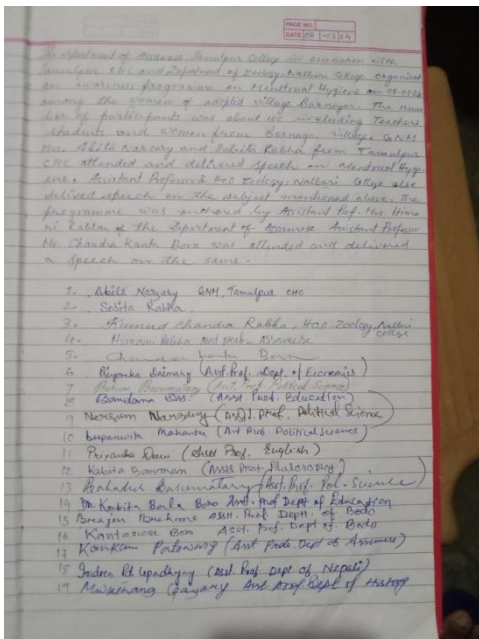 PAGE NO.
DATE 08 -03 24
The Department of Assamese Tamulpur College in association with
Tamulpur CHC and Department of Zoology, Nalbari College organised
an awareness programme on Menstrual Hygiene on
among the women of adopted village Barnagar. The num
ber of participants was about including Teachers
students and women from village. GNM
Abila Narzary and Sabita Rabha from Tamulpur
CHC attended and delivered speech on Menstrual Hygi
ene. Assistant Professor & HOD Zoology, Nalbari College also
delivered speech on the subject mentioned above. The
programme was anchored by Assistant Prof. Hima
ni of the Department of Assamese Assistant Professor
Mr Chandra Kanta Bora was attended and delivered
a speech on the same.
1. Abila Narzary GNM, Tamulpur CHC
2. Sabita Rabha
3. Kumud Chandra Rabha, HOD Zoology, Nalbari
College
4. Himani Asst prof. Assamese
5. Chandra Kanta Bora
6 Priyanka Daimary (Asst. Prof. Dept. of Economics)
7 Basumatary (Asst. Prof. Political Science)
8 Bandana Das (Asst Prof. Education)
9 Narzary (Asst. Prof. Political Science)
10 Deepanwita Mahanta (Ast Prof. Political Science)
11 Priyanka Deka (Asst Prof. English)
12 Kabita Barman (Asst Prof Philosophy)
13 Bahadur Basumatary (Asst. Prof. Pol. Science)
14 Dr. Kabita Boro Asst. Prof Dept of Education
15 Asstt. Prof Deptt. of Bodo
16 Boro Asst. Prof. Dept of Bodo
17 Kankan Patowary (Asst Prof. Dept of Assamese)
18 Indra Pd. Upadhyay (Asst. Prof Dept of Nepali)
19 Mwkthang Gayary Asst Prof. Dept of History